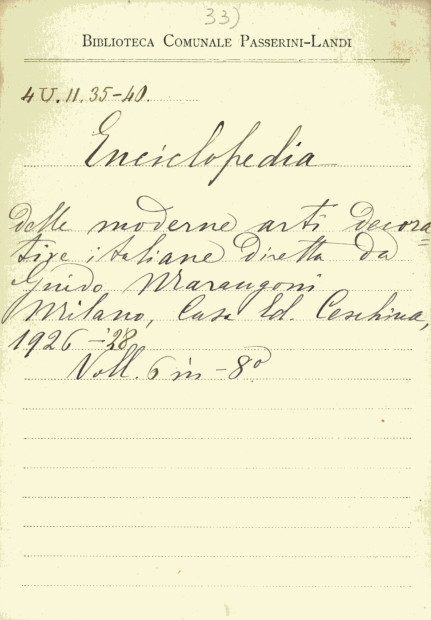 33)
BIBLIOTECA COMUNALE PASSERINI-LANDI
4 U. 11. 35-40.
Enciclopedia
delle moderne arti decora=
tive italiane diretta da
Guido Marangoni
Milano, Casa Ed. Ceschina,
1926-'28
Voll. 6 in-8º